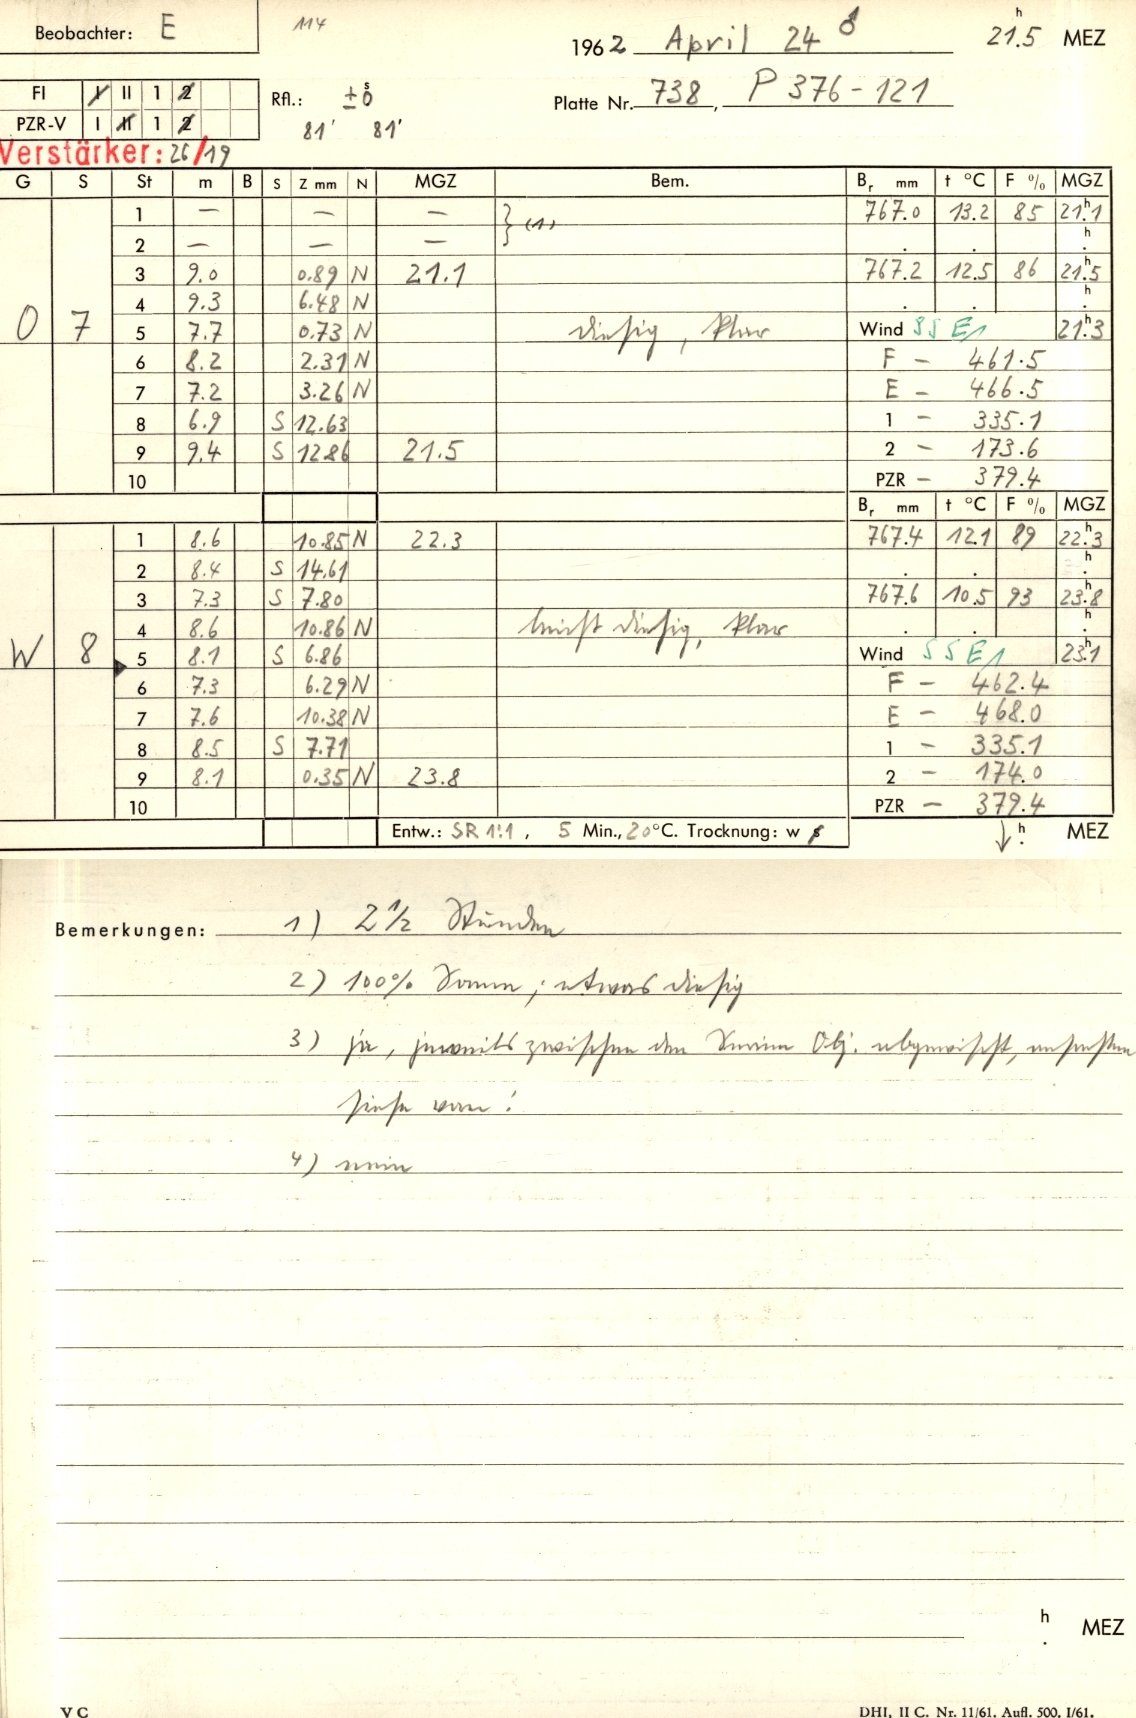 Beobachter: E 114 1962 April 24 ♂ 21.5 h MEZ
FI I II 1 2 Rfl.: ± 0 s Platte Nr. 738, P 376-121
PZR-V I II 1 2 81' 81'
Verstärker: 26/19
G S St m B S Z mm N MGZ Bem. Br mm t °C F % MGZ
1 — — — } (1) 767.0 13.2 85 21.1 h
2 — — — . . h .
3 9.0 0.89 N 21.1 767.2 12.5 86 21.5 h
4 9.3 6.48 N . . h .
O 7 5 7.7 0.73 N diesig, klar Wind SSE1 21.3 h
6 8.2 2.31 N F – 461.5
7 7.2 3.26 N E – 466.5
8 6.9 S 12.63 1 – 335.1
9 9.4 S 12.86 21.5 2 – 173.6
10 PZR – 379.4
Br mm t °C F % MGZ
1 8.6 10.85 N 22.3 767.4 12.1 89 22.3 h
2 8.4 S 14.61 . . h .
3 7.3 S 7.80 767.6 10.5 93 23.8 h
4 8.6 10.86 N leicht diesig, klar . . h .
W 8 5 8.1 S 6.86 Wind SSE1 23.1 h
6 7.3 6.29 N F – 462.4
7 7.6 10.38 N E – 468.0
8 8.5 S 7.71 1 – 335.1
9 8.1 0.35 N 23.8 2 – 174.0
10 PZR – 379.4
Entw.: SR 1:1, 5 Min., 20°C. Trocknung: w ↓ h . MEZ
Bemerkungen: 1) 2 1/2 Stunden
2) 100% ; etwas diesig
3) ja, jeweils zwischen den Serien Obj. abgewischt, ansonsten
siehe vorn!
4) nein
h . MEZ
V C DHI, II C. Nr. 11/61. Aufl. 500. I/61.